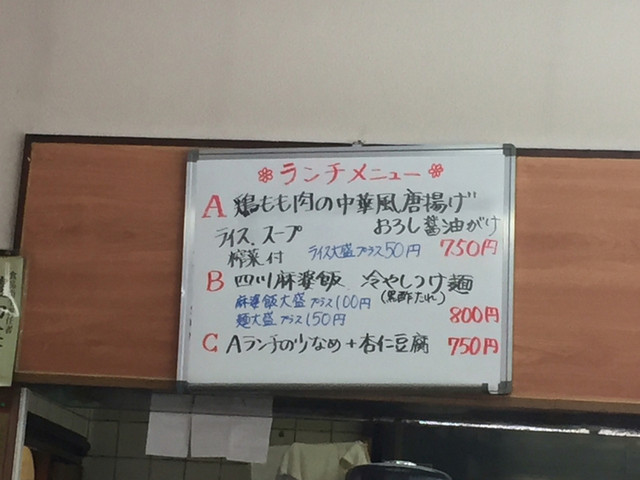 ランチメニュー
A 鶏もも肉の中華風唐揚げ
おろし醤油がけ
ライス、スープ
搾菜付 ライス大盛プラス50円 750円
B 四川麻婆飯 冷やしつけ麺
(黒酢たれ)
麻婆飯大盛プラス100円
麺大盛プラス150円 800円
C Aランチの少なめ+杏仁豆腐 750円